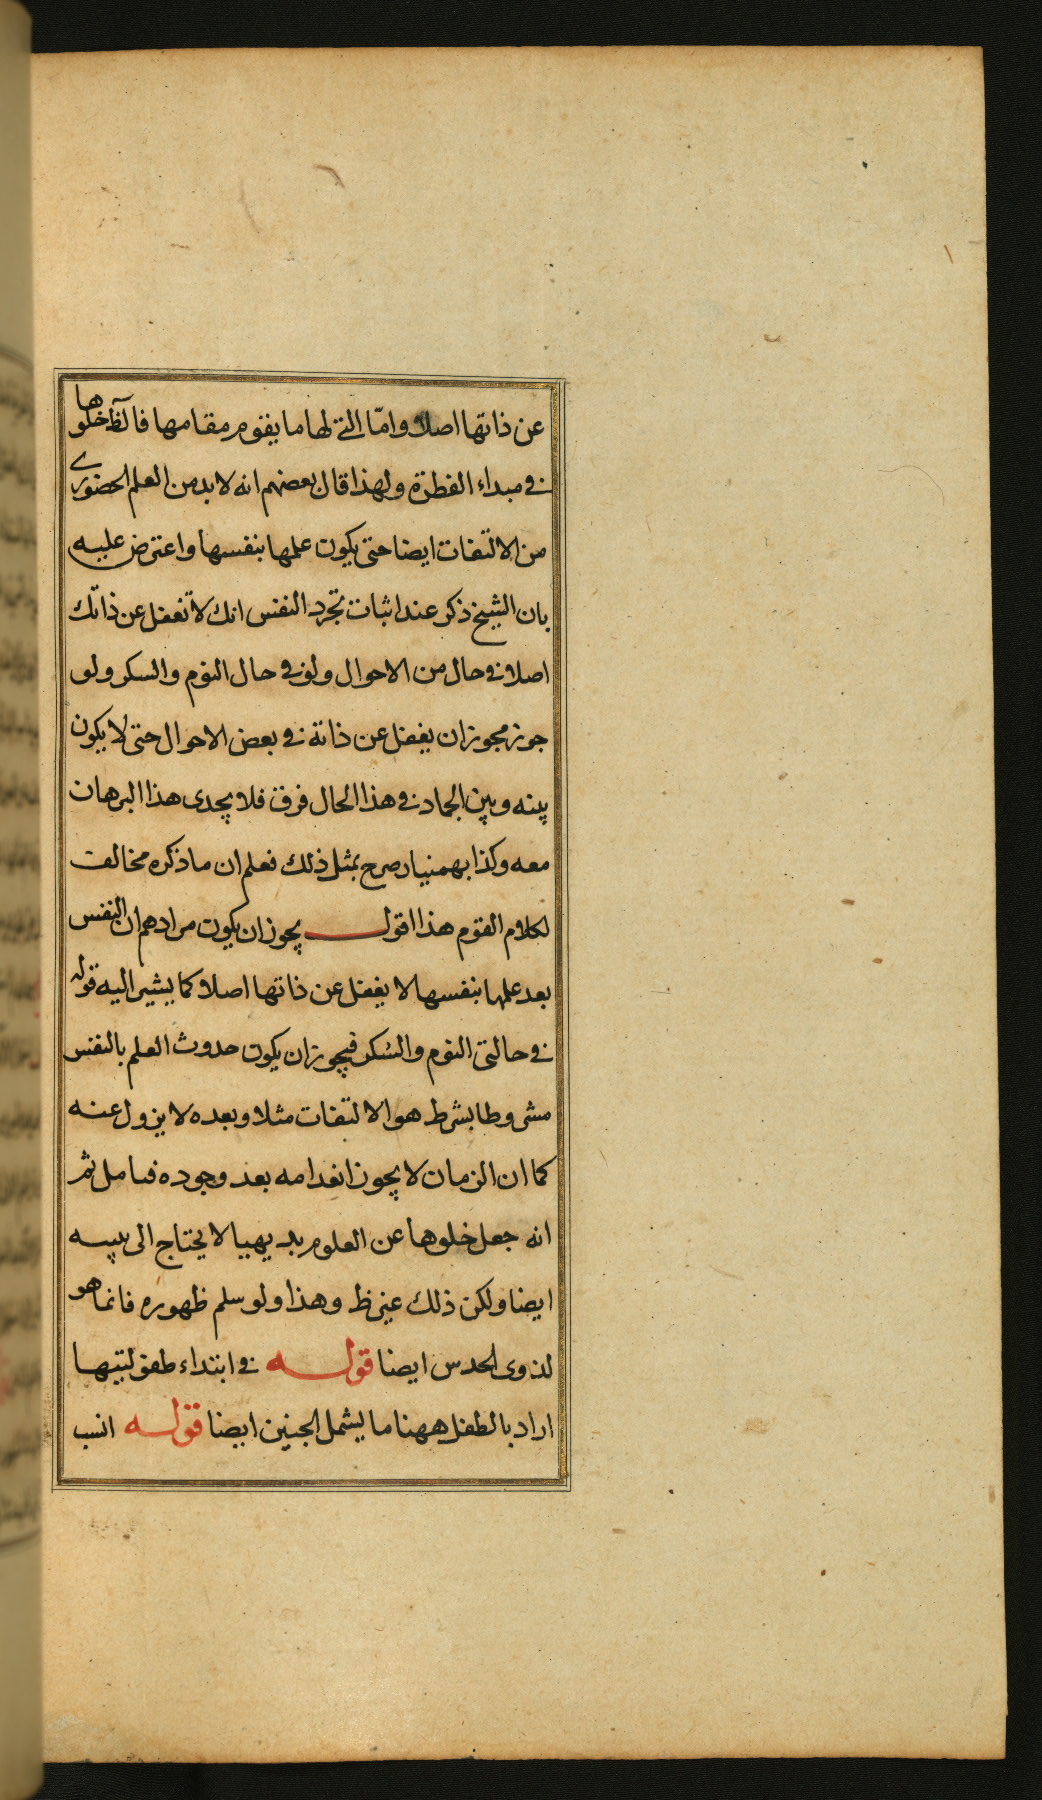 عن ذاتها اصلا وامّا التى لها ما يقوم مقامها فالظ خلوها
فى مبداء الفطرة ولهذا قال بعضهم انه لا بد من العلم الحضورى
من الالتفات ايضا حتى يكون علمها بنفسها واعترض عليه
بان الشيخ ذكر عند اثبات تجرد النفس انك لا تغفل عن ذاتك
اصلا فى حال من الاحوال ولو فى حال النوم والسكر ولو
جوز مجوز ان يغفل عن ذاته فى بعض الاحوال حتى لا يكون
بينه وبين الجماد فى هذا الحال فرق فلا يجدى هذا البرهان
معه وكذا بهمنيار صرح بمثل ذلك فعلم ان ما ذكره مخالف
لكلام القوم هذا اقول يجوز ان يكون مرادهم ان النفس
بعد علمها بنفسها لا يغفل عن ذاتها اصلا كما يشير اليه قوله
فى حالتى النوم والسكر فيجوز ان يكون حدوث العلم بالنفس
مشروطا بشرط هو الالتفات مثلا وبعده لا يزول عنه
كما ان الزمان لا يجوز انعدامه بعد وجوده فتامل ثم
انه جعل خلوها عن العلوم بديهيا لا يحتاج الى
ايضا ولكن ذلك غير ظ وهذا ولو سلم ظهوره فانما هو
لذوى الحدس ايضا قوله فى ابتداء طفوليتها
اراد بالطفل ههنا ما يشمل الجنين ايضا قوله انسب